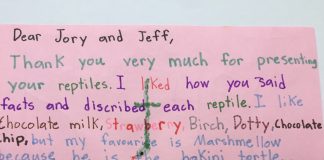 Dear Jory and Jeff,
Thank you very much for presenting
your reptiles. I liked how you said
facts and discribed each reptile. I like
chocolate milk, Strawberry, Birch, Dotty, chocolate
chip, but my favourise is Marshmellow
because he is the baKini tortle